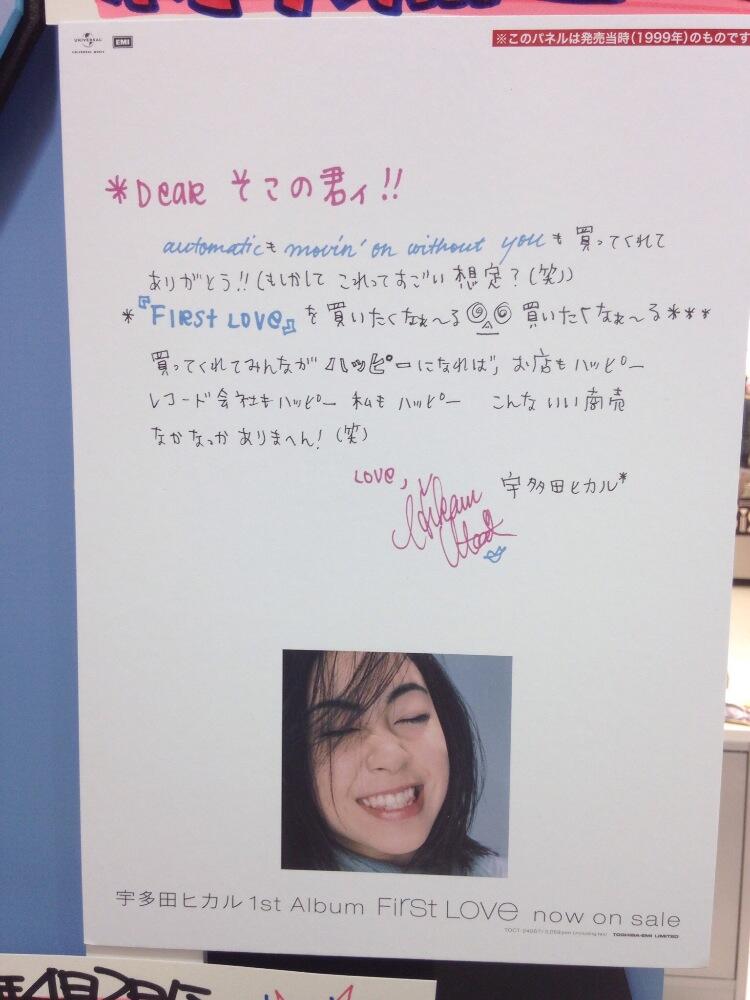 UNIVERSAL
UNIVERSAL MUSIC
EMI
※このパネルは発売当時(1999年)のものです
*Dear そこの君ィ!!
automaticも movin' on without youも 買ってくれて
ありがとう!!(もしかして これってすごい 想定?(笑))
*『First Love』を 買いたくなぁ〜る 買いたくなぁ〜る***
買ってくれてみんなが ハッピーになれれば、お店も ハッピー
レコード会社もハッピー 私も ハッピー こんな いい 商売
なかなっか ありまへん!(笑)
Love, Hikaru Utada 宇多田ヒカル*
宇多田ヒカル 1st Album First Love now on sale
TOSHIBA-EMI LIMITED